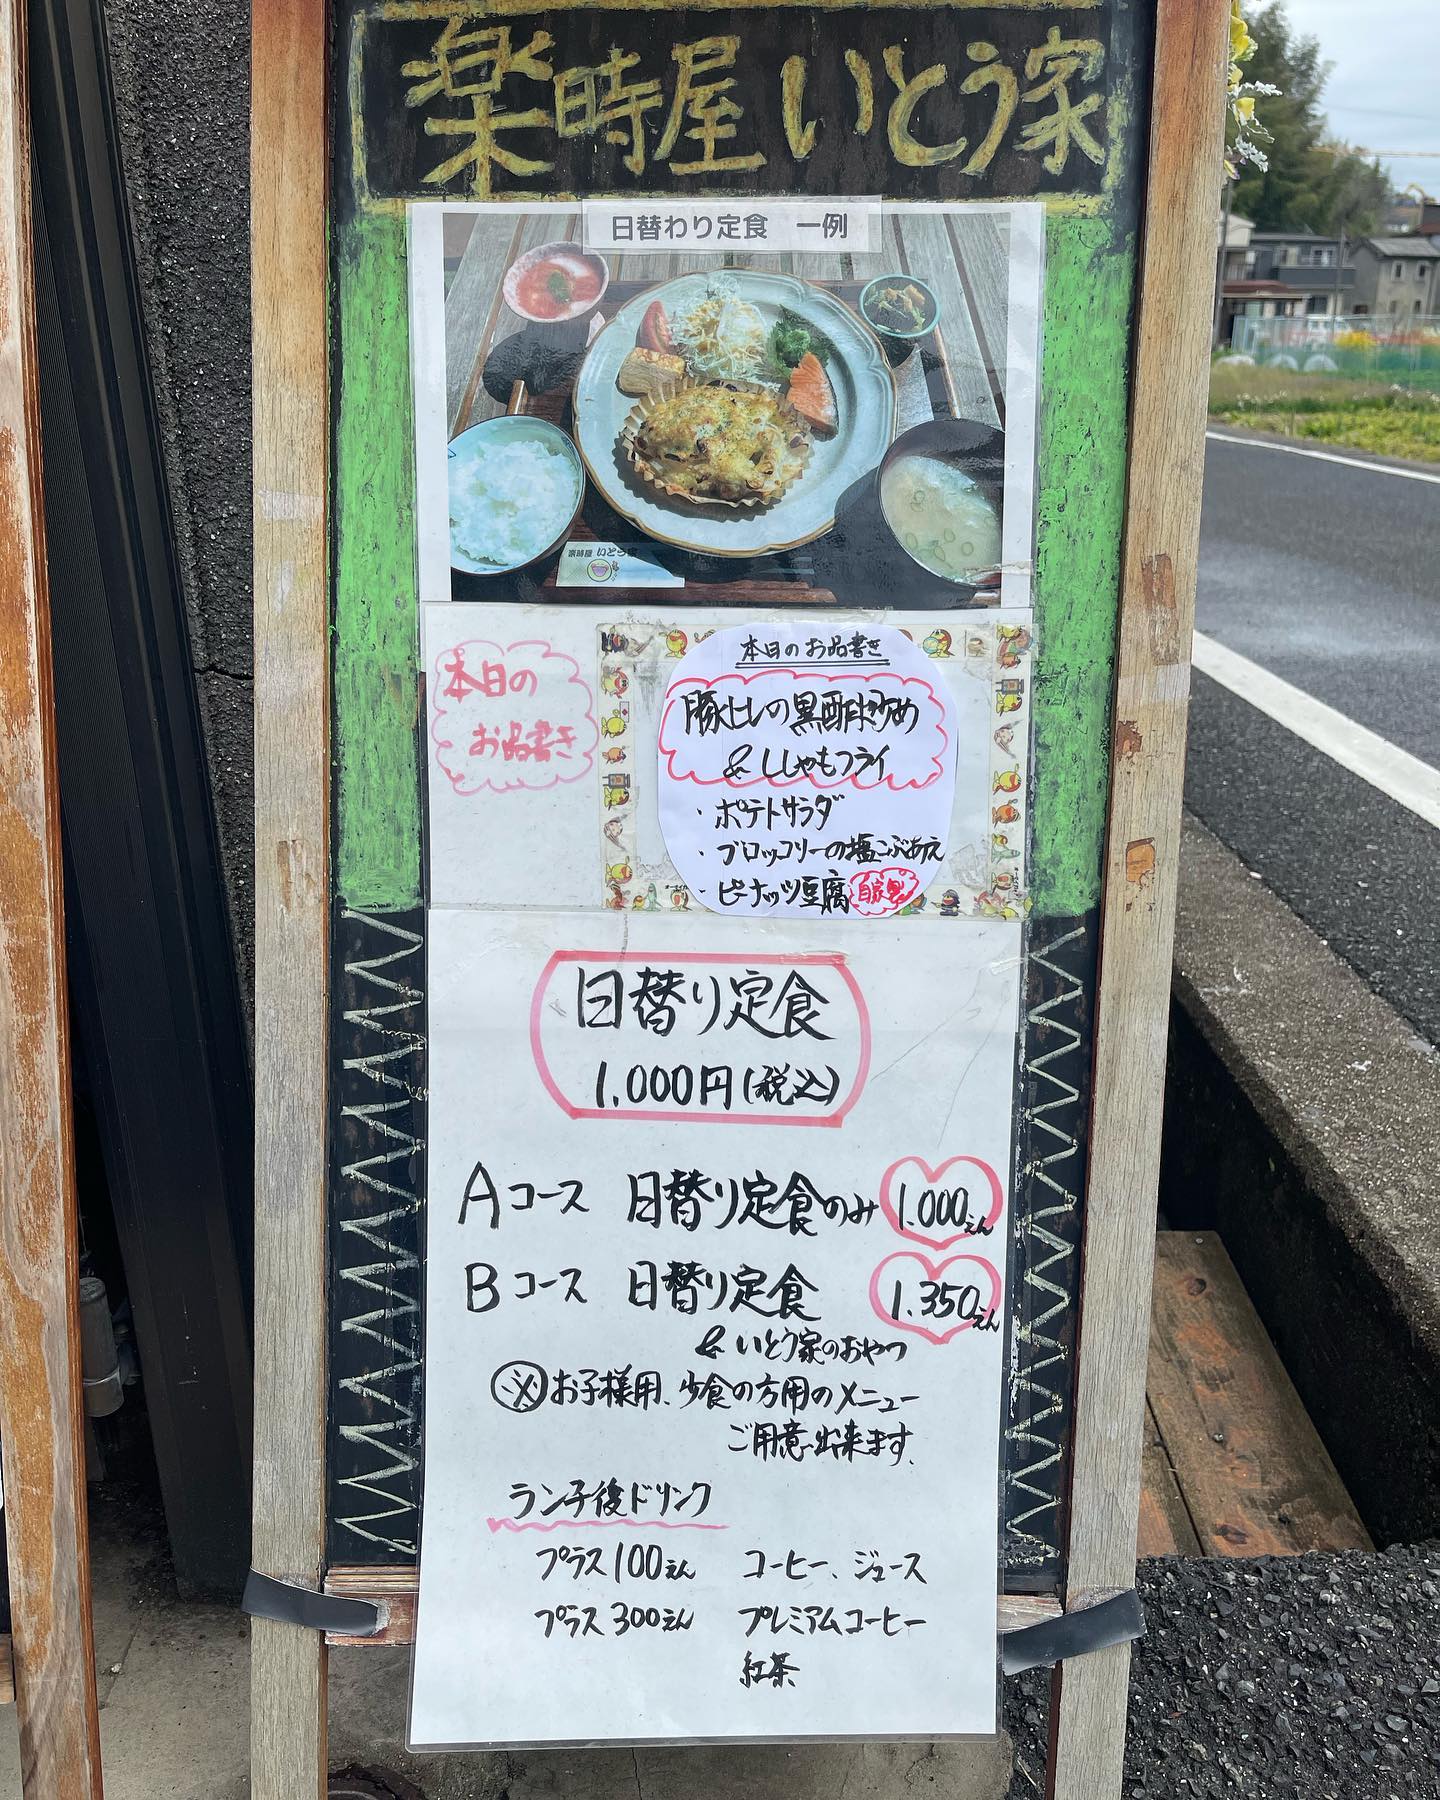 楽時屋 いとう家
日替わり定食 一例
楽時屋 いとう家
本日の
お品書き
本日のお品書き
豚ヒレの黒酢炒め
&ししゃもフライ
・ポテトサラダ
・ブロッコリーの塩こぶあえ
・ピーナッツ豆腐 自家製
日替り定食
1.000円(税込)
Aコース 日替り定食のみ 1.000えん
Bコース 日替り定食 1.350えん
& いとう家のおやつ
※お子様用、少食の方用のメニュー
ご用意出来ます。
ランチ後ドリンク
プラス100えん コーヒー、ジュース
プラス300えん プレミアムコーヒー
紅茶